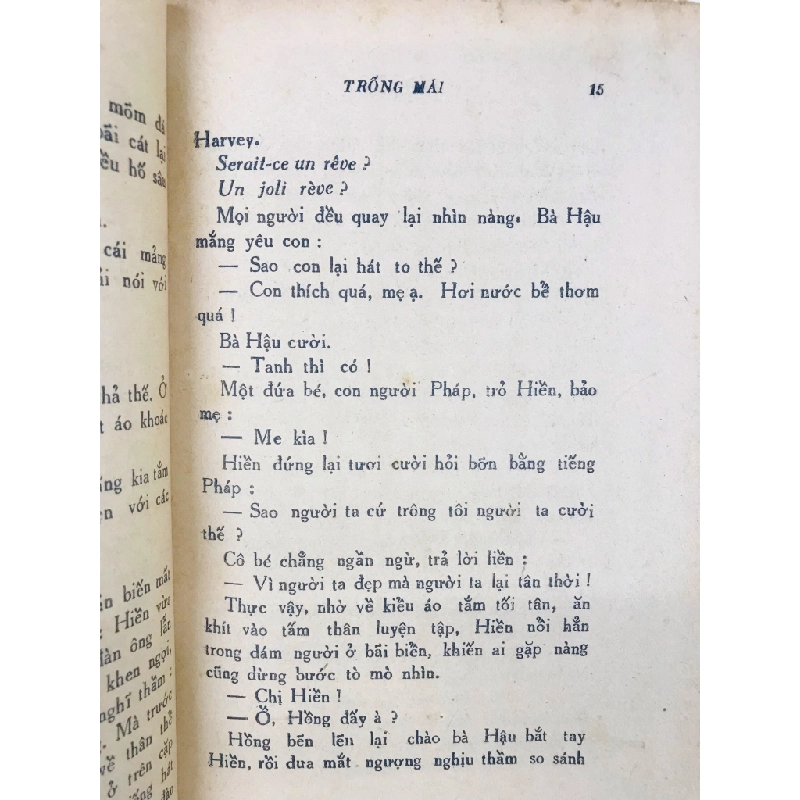 mỏm đá
bãi cát lại
ều hố sâu
cái mảng
ải nói với
hả thế. Ở
t áo khoác
ẳng kia tắm
ện với các
ần biển mất
Hiền vừa
đàn ông lẫn
khen ngợi,
nghĩ thầm :
Mà trước
về thân thể
ở trên cặp
tiếng hát
TRỐNG MÁI 15
Harvey.
Serait-ce un rêve ?
Un joli rève ?
Mọi người đều quay lại nhìn nàng. Bà Hậu
mắng yêu con :
— Sao con lại hát to thế ?
— Con thích quá, mẹ ạ. Hơi nước bể thơm
quá !
Bà Hậu cười.
— Tanh thì có !
Một đứa bé, con người Pháp, trỏ Hiền, bảo
mẹ :
— Me kìa !
Hiền đứng lại tươi cười hỏi bỡn bằng tiếng
Pháp :
— Sao người ta cứ trông tôi người ta cười
thế ?
Cô bé chẳng ngần ngừ, trả lời liền :
— Vì người ta đẹp mà người ta lại tân thời !
Thực vậy, nhờ về kiểu áo tắm tối tân, ăn
khít vào tấm thân luyện tập, Hiền nổi hẳn
trong đám người ở bãi biển, khiến ai gặp nàng
cũng dừng bước tò mò nhìn.
— Chị Hiền !
— Ồ, Hồng đấy à ?
Hồng bẽn lẽn lại chào bà Hậu bắt tay
Hiền, rồi đưa mắt ngượng nghịu thầm so sánh